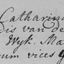 Catharina
dis van de
Wyk. Ma
num vices g